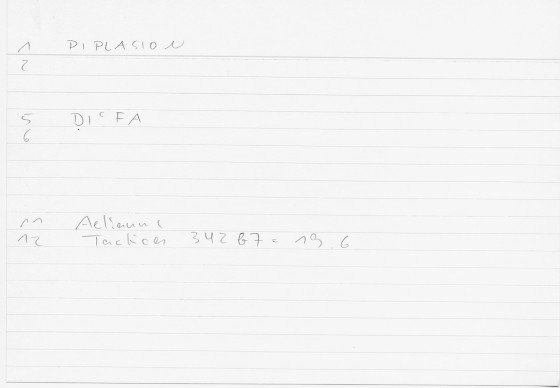 1 DIPLASION
2
5 DIᶜFA
6
11 Aelianus
12 Tactica 342 B7 = 19.6